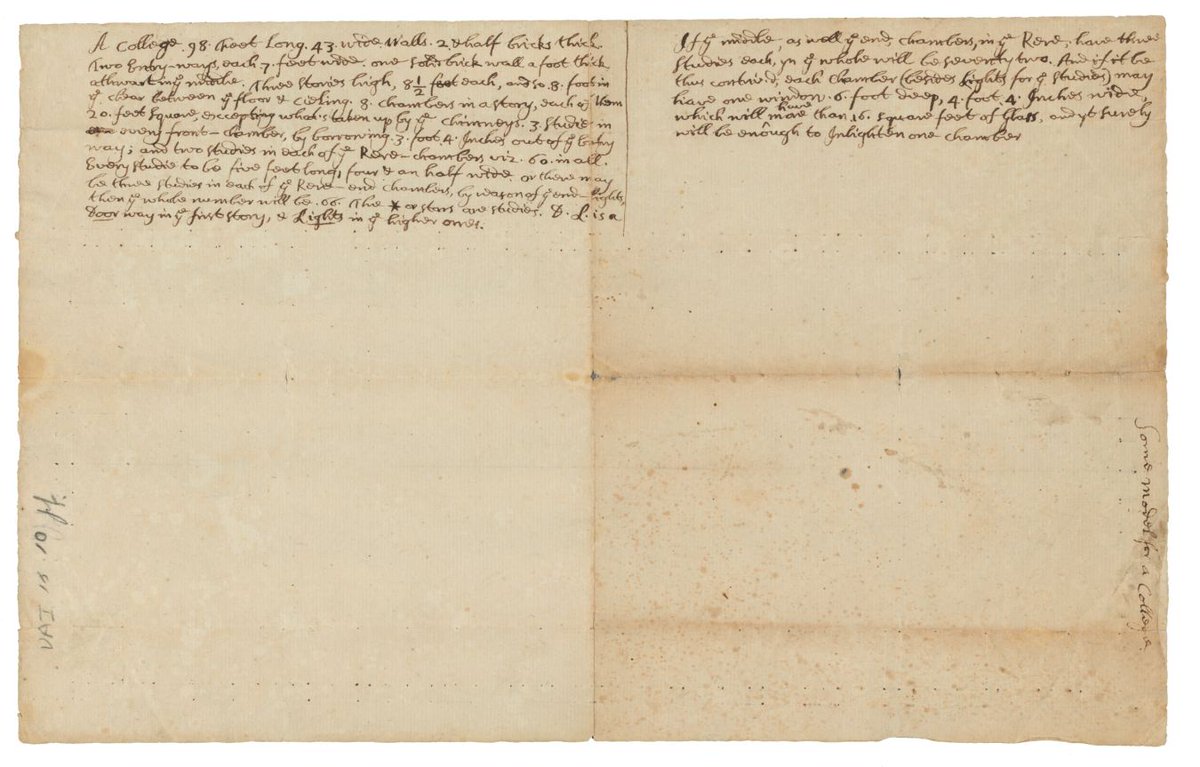 A College. 98. Feet Long. 43. wide. Walls. 2. & half bricks thick.
Two Entry-ways, each 7 feet wide, one brick wall a foot thick
athwart in yͤ middle. Three Stories high, 8 ½ feet each, and so. 8. foot in
yͤ clear between yͤ floor & Cieling. 8. Chambers in a story, each of them
20. feet square, excepting what is taken up by yͤ Chimneys. 3 Studies in
every front-chamber, by borrowing. 3. foot. 4. Inches out of yͤ Entry
way; and two studies in each of yͤ Rere-chambers, viz. 60. in all.
Every studie to be five feet long, four & an half wide. or there may
be three studies in each of yͤ Rere-end Chambers, by reason of yͤ end-lights,
then yͤ whole number will be. 66. The * or stars are studies. D. L. is a
Door way in yͤ first story, & Lights in yͤ higher ones.
If yͤ middle, as well yͤ end, chambers, in yͤ Rere, have three
studies each, yn yͤ whole will be seventy two. And if it be
thus contrived, each chamber (besides lights for yͤ studies) may
have one window. 6. foot deep, 4. foot. 4. Inches wide,
which will have more than. 16. square feet of Glass, and yt surely
will be enough to Inlighten one chamber
Some model for a College
UAI 15. 10